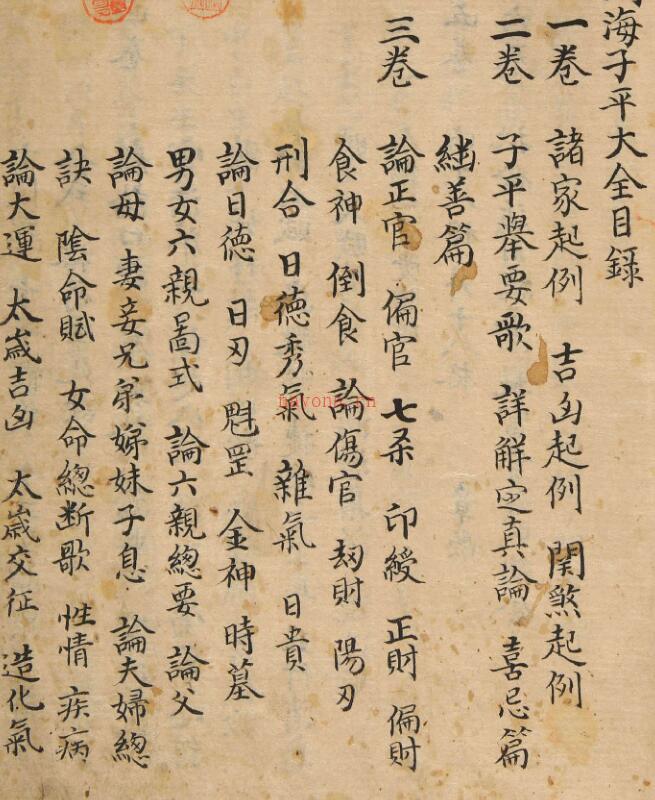 海子平大全目録
一卷 諸家起例 吉凶起例 関煞起例
二卷 子平舉要歌 詳解定真論 喜忌篇
継善篇
三卷 論正官 偏官 七杀 印綬 正財 偏財
食神 倒食 論傷官 刼財 陽刃
刑合 日德秀氣 雜氣 日貴
論日德 日刃 魁罡 金神 時墓
男女六親圖式 論六親總要 論父
論母 妻妾兄弟姊妹子息 論夫婦總
訣 陰命賦 女命總断歌 性情 疾病
論大運 太歲吉凶 太歲交征 造化氣